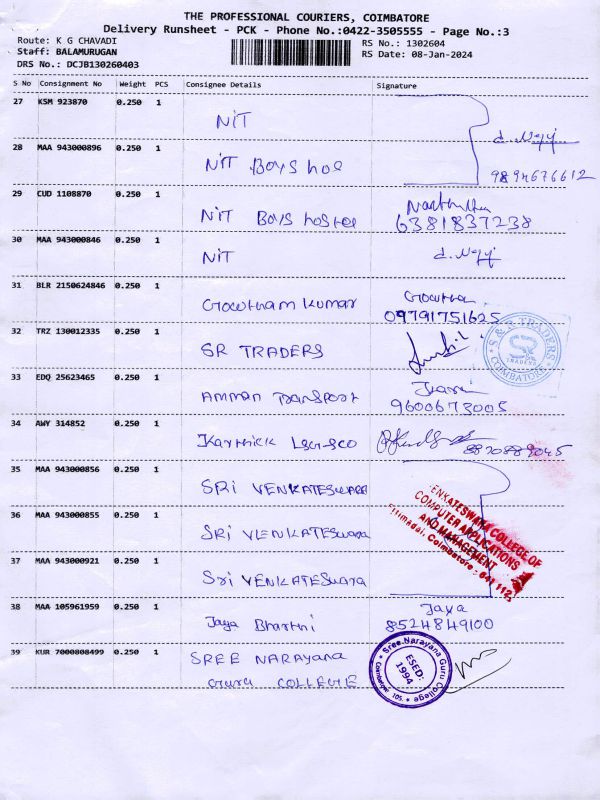 THE PROFESSIONAL COURIERS, COIMBATORE
Delivery Runsheet - PCK - Phone No.:0422-3505555 - Page No.:3
Route: K G CHAVADI
RS No.: 1302604
Staff: BALAMURUGAN
RS Date: 08-Jan-2024
DRS No.: DCJB130260403
S No Consignment No Weight PCS Consignee Details Signature
27 KSM 923870 0.250 1
NIT
28 MAA 943000896 0.250 1
NIT Boys hos
9894676612
29 CUD 1108870 0.250 1
NIT Boys hostel
6381837238
30 MAA 943000846 0.250 1
NIT
31 BLR 2150624846 0.250 1
Gowtham kumar Gowtham
09791751625
32 TRZ 130012335 0.250 1
SR TRADERS
S & R TRADERS
SR
TRADERS
COIMBATORE
33 EDQ 25623465 0.250 1
Amman Transport
9600673005
34 AWY 314852 0.250 1
Karthick
8870889045
35 MAA 943000856 0.250 1
SRI VENKATESwara
36 MAA 943000855 0.250 1
SRI VENKATESwara
VENKATESWARA COLLEGE OF
COMPUTER APPLICATIONS
AND MANAGEMENT
Ettimadai, Coimbatore - 641 112.
37 MAA 943000921 0.250 1
Sri VENKATESwara
38 MAA 105961959 0.250 1
Jaya Bharthi Jaya
8524849100
39 KUR 7000808499 0.250 1
SREE NARAYANA
Guru COLLEGE
Sree Narayana Guru College
ESED:
1994
Coimbatore - 105.